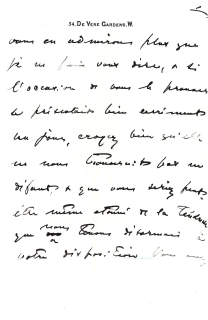 34, DE VERE GARDENS, W.
vous en admirons plus que
je ne puis vous dire, & si
l'occasion de vous le prouver
se présentait bien
un jour, croyez bien qu'elle
ne nous trouverait pas en
défaut, & que vous seriez peut-
être même étonné de la
que nous tenons désormais à
votre disposition. Vous